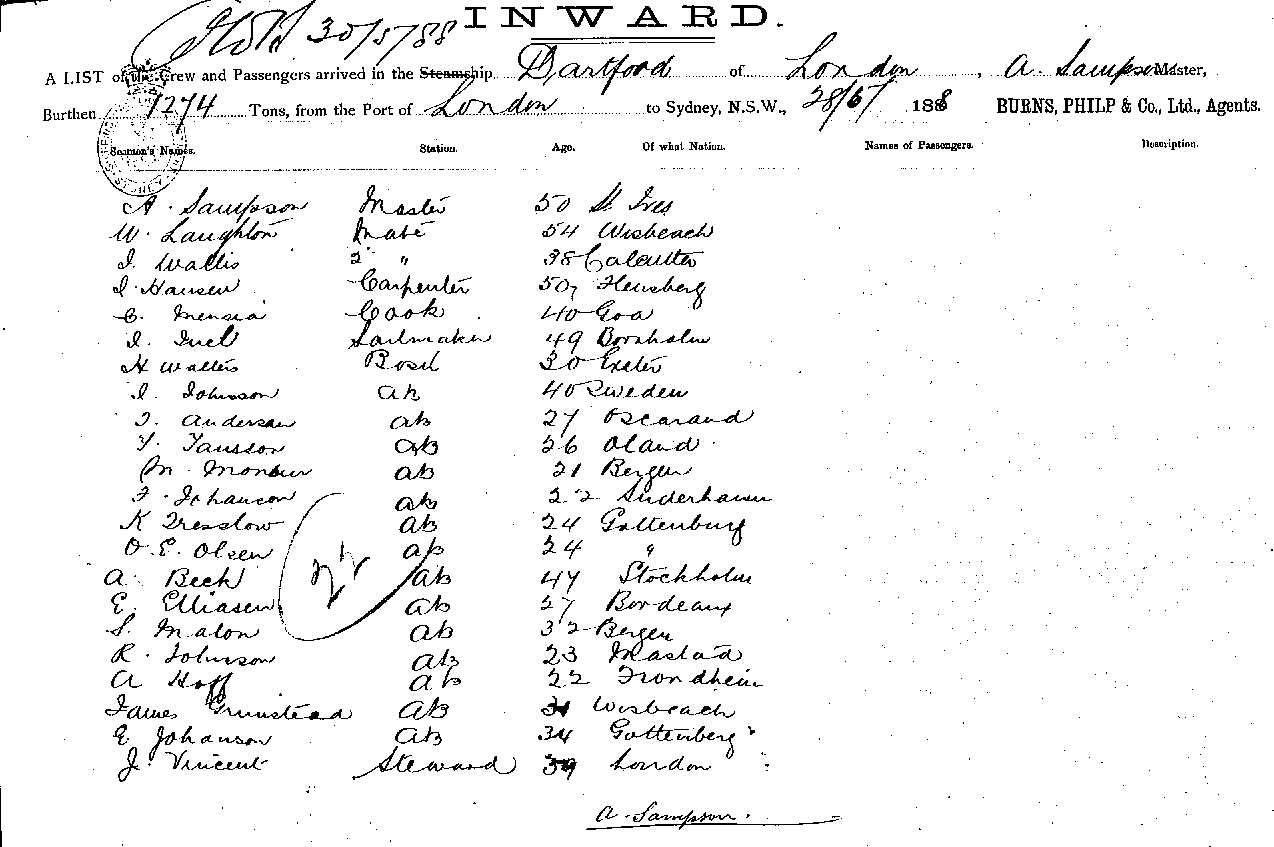 30/5/88 INWARD.
A LIST of the Crew and Passengers arrived in the Steamship Dartford of London, A. Sampson Master,
Burthen 1274 Tons, from the Port of London to Sydney, N.S.W., 28/5/ 1888 BURNS, PHILP & Co., Ltd., Agents.
Seamen's Names. Station. Age. Of what Nation. Names of Passengers. Description.
A. Sampson Master 50 St Ives
W. Laughton Mate 54 Wisbeach
I. Wallis 2 " 38 Calcutta
I. Hansen Carpenter 50 Flensberg
C. Mensia Cook 40 Goa
I. Juel Sailmaker 49 Bornholm
H Walters Bosn 30 Exeter
I. Johnson ab 40 Sweden
I. Anderson ab 27
Y. Jansson ab 26 Oland
M. Monsen ab 21 Bergen
F. Johanson ab 22
K Tresslow ab 24 Gottenburg
O. E. Olsen ab 24 "
A. Beck ab 47 Stockholm
E. Elliasen ab 27 Bordeaux
S. Malon ab 32 Bergen
R. Johnson ab 23
A Hoff ab 22 Trondheim
James Grimstead AB 31 Wisbeach
E Johanson AB 34 Gottenberg
J. Vincent Steward 39 London
22
A. Sampson.